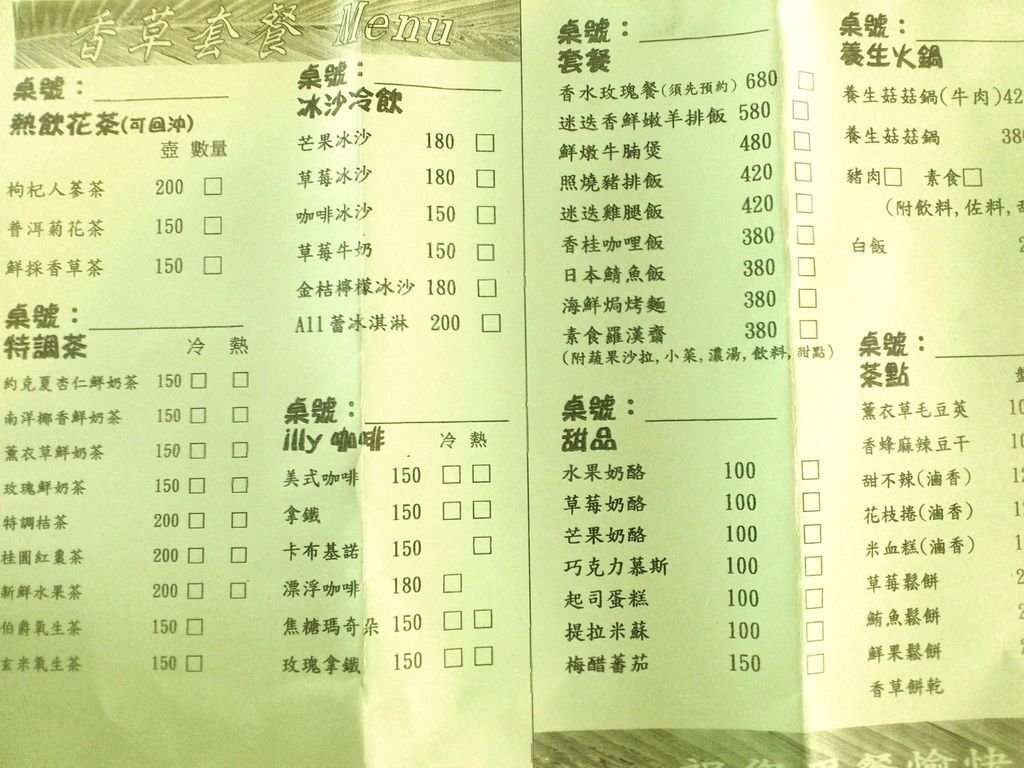 香草套餐 Menu
桌號：
熱飲花茶(可回沖)
壺 數量
枸杞人蔘茶 200 □
普洱菊花茶 150 □
鮮採香草茶 150 □
桌號：
特調茶 冷 熱
約克夏杏仁鮮奶茶 150 □ □
南洋椰香鮮奶茶 150 □ □
薰衣草鮮奶茶 150 □ □
玫瑰鮮奶茶 150 □ □
特調桔茶 200 □ □
桂圓紅棗茶 200 □ □
新鮮水果茶 200 □ □
伯爵氧生茶 150 □
玄米氧生茶 150 □
桌號：
冰沙冷飲
芒果冰沙 180 □
草莓冰沙 180 □
咖啡冰沙 150 □
草莓牛奶 150 □
金桔檸檬冰沙 180 □
All蕾冰淇淋 200 □
桌號：
illy 咖啡 冷 熱
美式咖啡 150 □ □
拿鐵 150 □ □
卡布基諾 150 □
漂浮咖啡 180 □
焦糖瑪奇朵 150 □ □
玫瑰拿鐵 150 □ □
桌號：
套餐
香水玫瑰餐(須先預約) 680 □
迷迭香鮮嫩羊排飯 580 □
鮮燉牛腩煲 480 □
照燒豬排飯 420 □
迷迭雞腿飯 420 □
香桂咖哩飯 380 □
日本鯖魚飯 380 □
海鮮焗烤麵 380 □
素食羅漢齋 380 □
(附蔬果沙拉,小菜,濃湯,飲料,甜點)
桌號：
甜品
水果奶酪 100 □
草莓奶酪 100 □
芒果奶酪 100 □
巧克力慕斯 100 □
起司蛋糕 100 □
提拉米蘇 100 □
梅醋蕃茄 150 □
桌號：
養生火鍋
養生菇菇鍋(牛肉)42
養生菇菇鍋 380
豬肉□ 素食□
(附飲料,佐料,
白飯
桌號：
茶點
薰衣草毛豆莢
香蜂麻辣豆干
甜不辣(滷香)
花枝捲(滷香)
米血糕(滷香)
草莓鬆餅
鮪魚鬆餅
鮮果鬆餅
香草餅乾
祝您用餐愉快